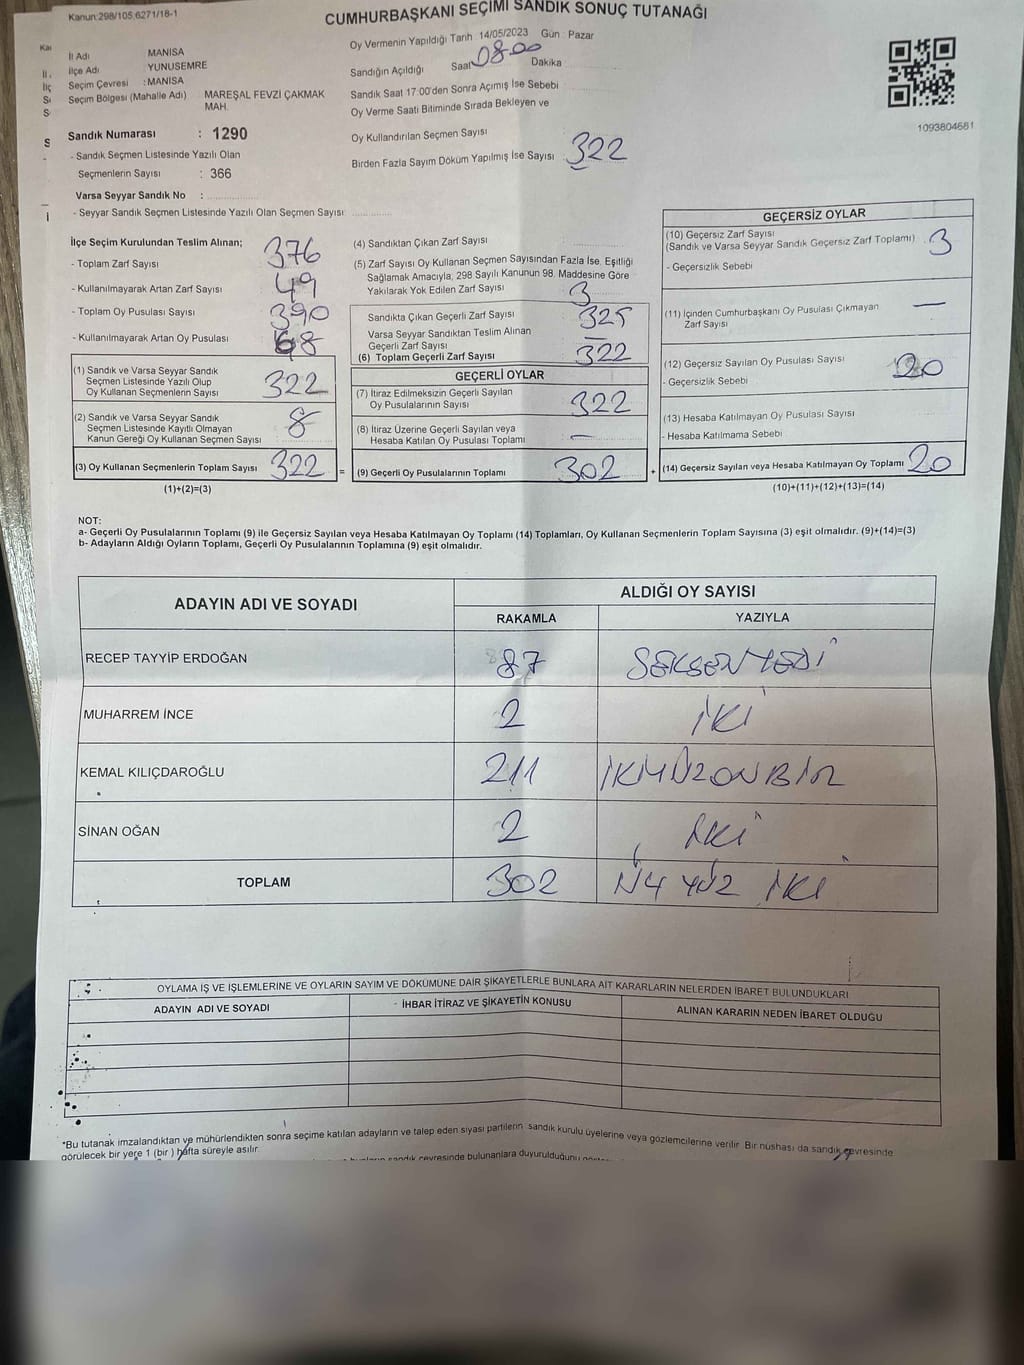 Kanun:298/105,6271/18-1
CUMHURBAŞKANI SEÇİMİ SANDIK SONUÇ TUTANAĞI
İl Adı MANİSA
İlçe Adı YUNUSEMRE
Seçim Çevresi : MANİSA
Seçim Bölgesi (Mahalle Adı) MAREŞAL FEVZİ ÇAKMAK MAH.
Sandık Numarası : 1290
- Sandık Seçmen Listesinde Yazılı Olan
Seçmenlerin Sayısı : 366
Varsa Seyyar Sandık No :
- Seyyar Sandık Seçmen Listesinde Yazılı Olan Seçmen Sayısı:
Oy Vermenin Yapıldığı Tarih 14/05/2023 Gün : Pazar
Sandığın Açıldığı Saat 08.00 Dakika
Sandık Saat 17:00'den Sonra Açımış İse Sebebi
Oy Verme Saati Bitiminde Sırada Bekleyen ve
Oy Kullandırılan Seçmen Sayısı
Birden Fazla Sayım Döküm Yapılmış İse Sayısı 322
1093804681
İlçe Seçim Kurulundan Teslim Alınan;
- Toplam Zarf Sayısı 376
- Kullanılmayarak Artan Zarf Sayısı 49
- Toplam Oy Pusulası Sayısı 390
- Kullanılmayarak Artan Oy Pusulası 68
(1) Sandık ve Varsa Seyyar Sandık
Seçmen Listesinde Yazılı Olup
Oy Kullanan Seçmenlerin Sayısı 322
(2) Sandık ve Varsa Seyyar Sandık
Seçmen Listesinde Kayıtlı Olmayan
Kanun Gereği Oy Kullanan Seçmen Sayısı 8
(3) Oy Kullanan Seçmenlerin Toplam Sayısı 322 =
(1)+(2)=(3)
(4) Sandıktan Çıkan Zarf Sayısı
(5) Zarf Sayısı Oy Kullanan Seçmen Sayısından Fazla İse, Eşitliği
Sağlamak Amacıyla, 298 Sayılı Kanunun 98. Maddesine Göre
Yakılarak Yok Edilen Zarf Sayısı 3
Sandıkta Çıkan Geçerli Zarf Sayısı 325
Varsa Seyyar Sandıktan Teslim Alınan
Geçerli Zarf Sayısı —
(6) Toplam Geçerli Zarf Sayısı 322
GEÇERLİ OYLAR
(7) İtiraz Edilmeksizin Geçerli Sayılan
Oy Pusulalarının Sayısı 322
(8) İtiraz Üzerine Geçerli Sayılan veya
Hesaba Katılan Oy Pusulası Toplamı —
(9) Geçerli Oy Pusulalarının Toplamı 302 +
GEÇERSİZ OYLAR
(10) Geçersiz Zarf Sayısı
(Sandık ve Varsa Seyyar Sandık Geçersiz Zarf Toplamı) 3
- Geçersizlik Sebebi
(11) İçinden Cumhurbaşkanı Oy Pusulası Çıkmayan —
Zarf Sayısı
(12) Geçersiz Sayılan Oy Pusulası Sayısı 20
- Geçersizlik Sebebi
(13) Hesaba Katılmayan Oy Pusulası Sayısı
- Hesaba Katılmama Sebebi
(14) Geçersiz Sayılan veya Hesaba Katılmayan Oy Toplamı 20
(10)+(11)+(12)+(13)=(14)
NOT:
a- Geçerli Oy Pusulalarının Toplamı (9) ile Geçersiz Sayılan veya Hesaba Katılmayan Oy Toplamı (14) Toplamları, Oy Kullanan Seçmenlerin Toplam Sayısına (3) eşit olmalıdır. (9)+(14)=(3)
b- Adayların Aldığı Oyların Toplamı, Geçerli Oy Pusulalarının Toplamına (9) eşit olmalıdır.
ADAYIN ADI VE SOYADI ALDIĞI OY SAYISI
RAKAMLA YAZIYLA
RECEP TAYYİP ERDOĞAN 87 SEKSEN YEDİ
MUHARREM İNCE 2 İKİ
KEMAL KILIÇDAROĞLU 211 İKİYÜZONBİR
SİNAN OĞAN 2 İKİ
TOPLAM 302 YÜZ İKİ
OYLAMA İŞ VE İŞLEMLERİNE VE OYLARIN SAYIM VE DÖKÜMÜNE DAİR ŞİKAYETLERLE BUNLARA AİT KARARLARIN NELERDEN İBARET BULUNDUKLARI
ADAYIN ADI VE SOYADI - İHBAR İTİRAZ VE ŞİKAYETİN KONUSU ALINAN KARARIN NEDEN İBARET OLDUĞU
*Bu tutanak imzalandıktan ve mühürlendikten sonra seçime katılan adayların ve talep eden siyasi partilerin sandık kurulu üyelerine veya gözlemcilerine verilir. Bir nüshası da sandık çevresinde
görülecek bir yere 1 (bir) hafta süreyle asılır.
sandık çevresinde bulunanlara duyurulduğunu